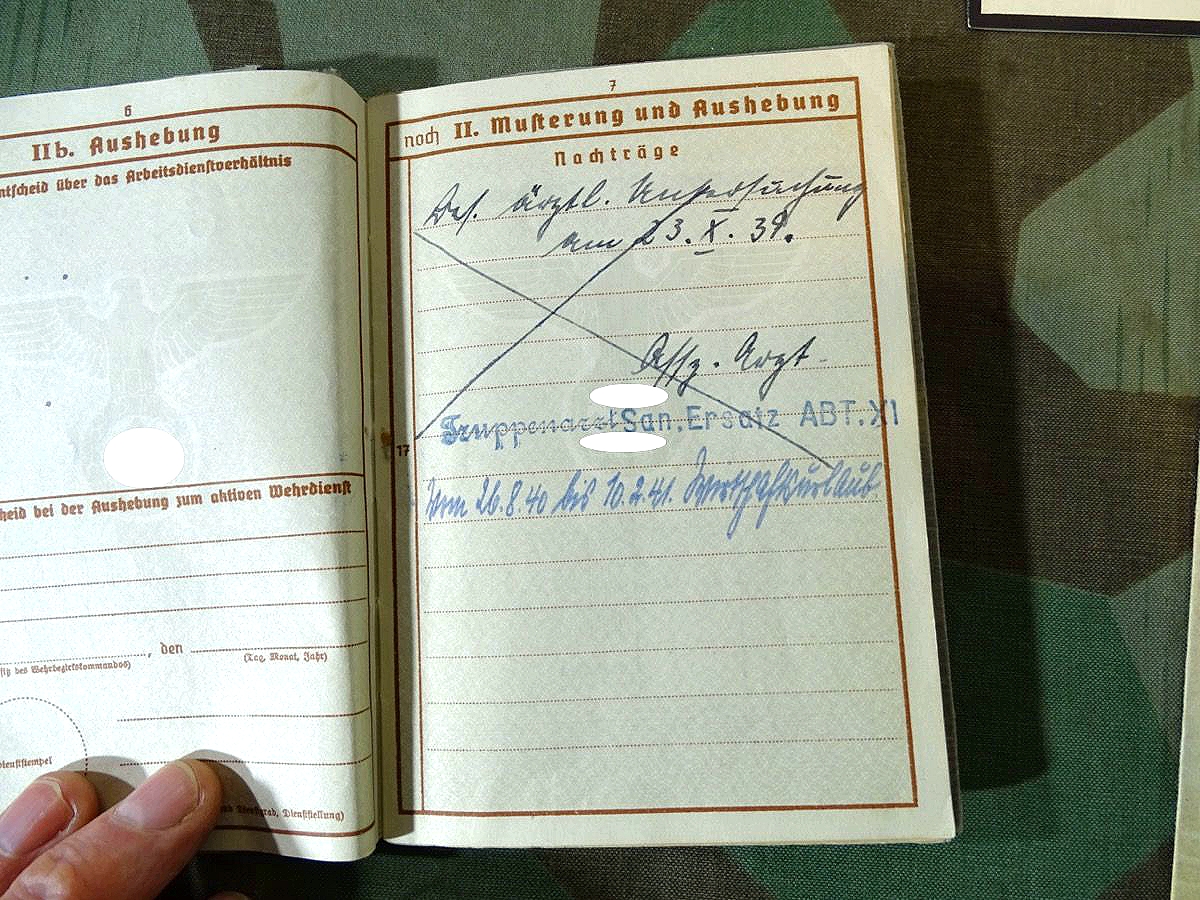 6
IIb. Aushebung
ntscheid über das Arbeitsdienstverhältnis
heid bei der Aushebung zum aktiven Wehrdienst
, den
itz des Wehrbezirkskommandos)
(Tag, Monat, Jahr)
Dienststempel
Dienstgrad, Dienststellung)
7
noch II. Musterung und Aushebung
Nachträge
ärztl. Untersuchung
am 23. X. 39.
Arzt
17
Truppenarzt San. Ersatz ABT. XI
Vom 26.8.40 bis 10.2.41. Wirtschaftsurlaub